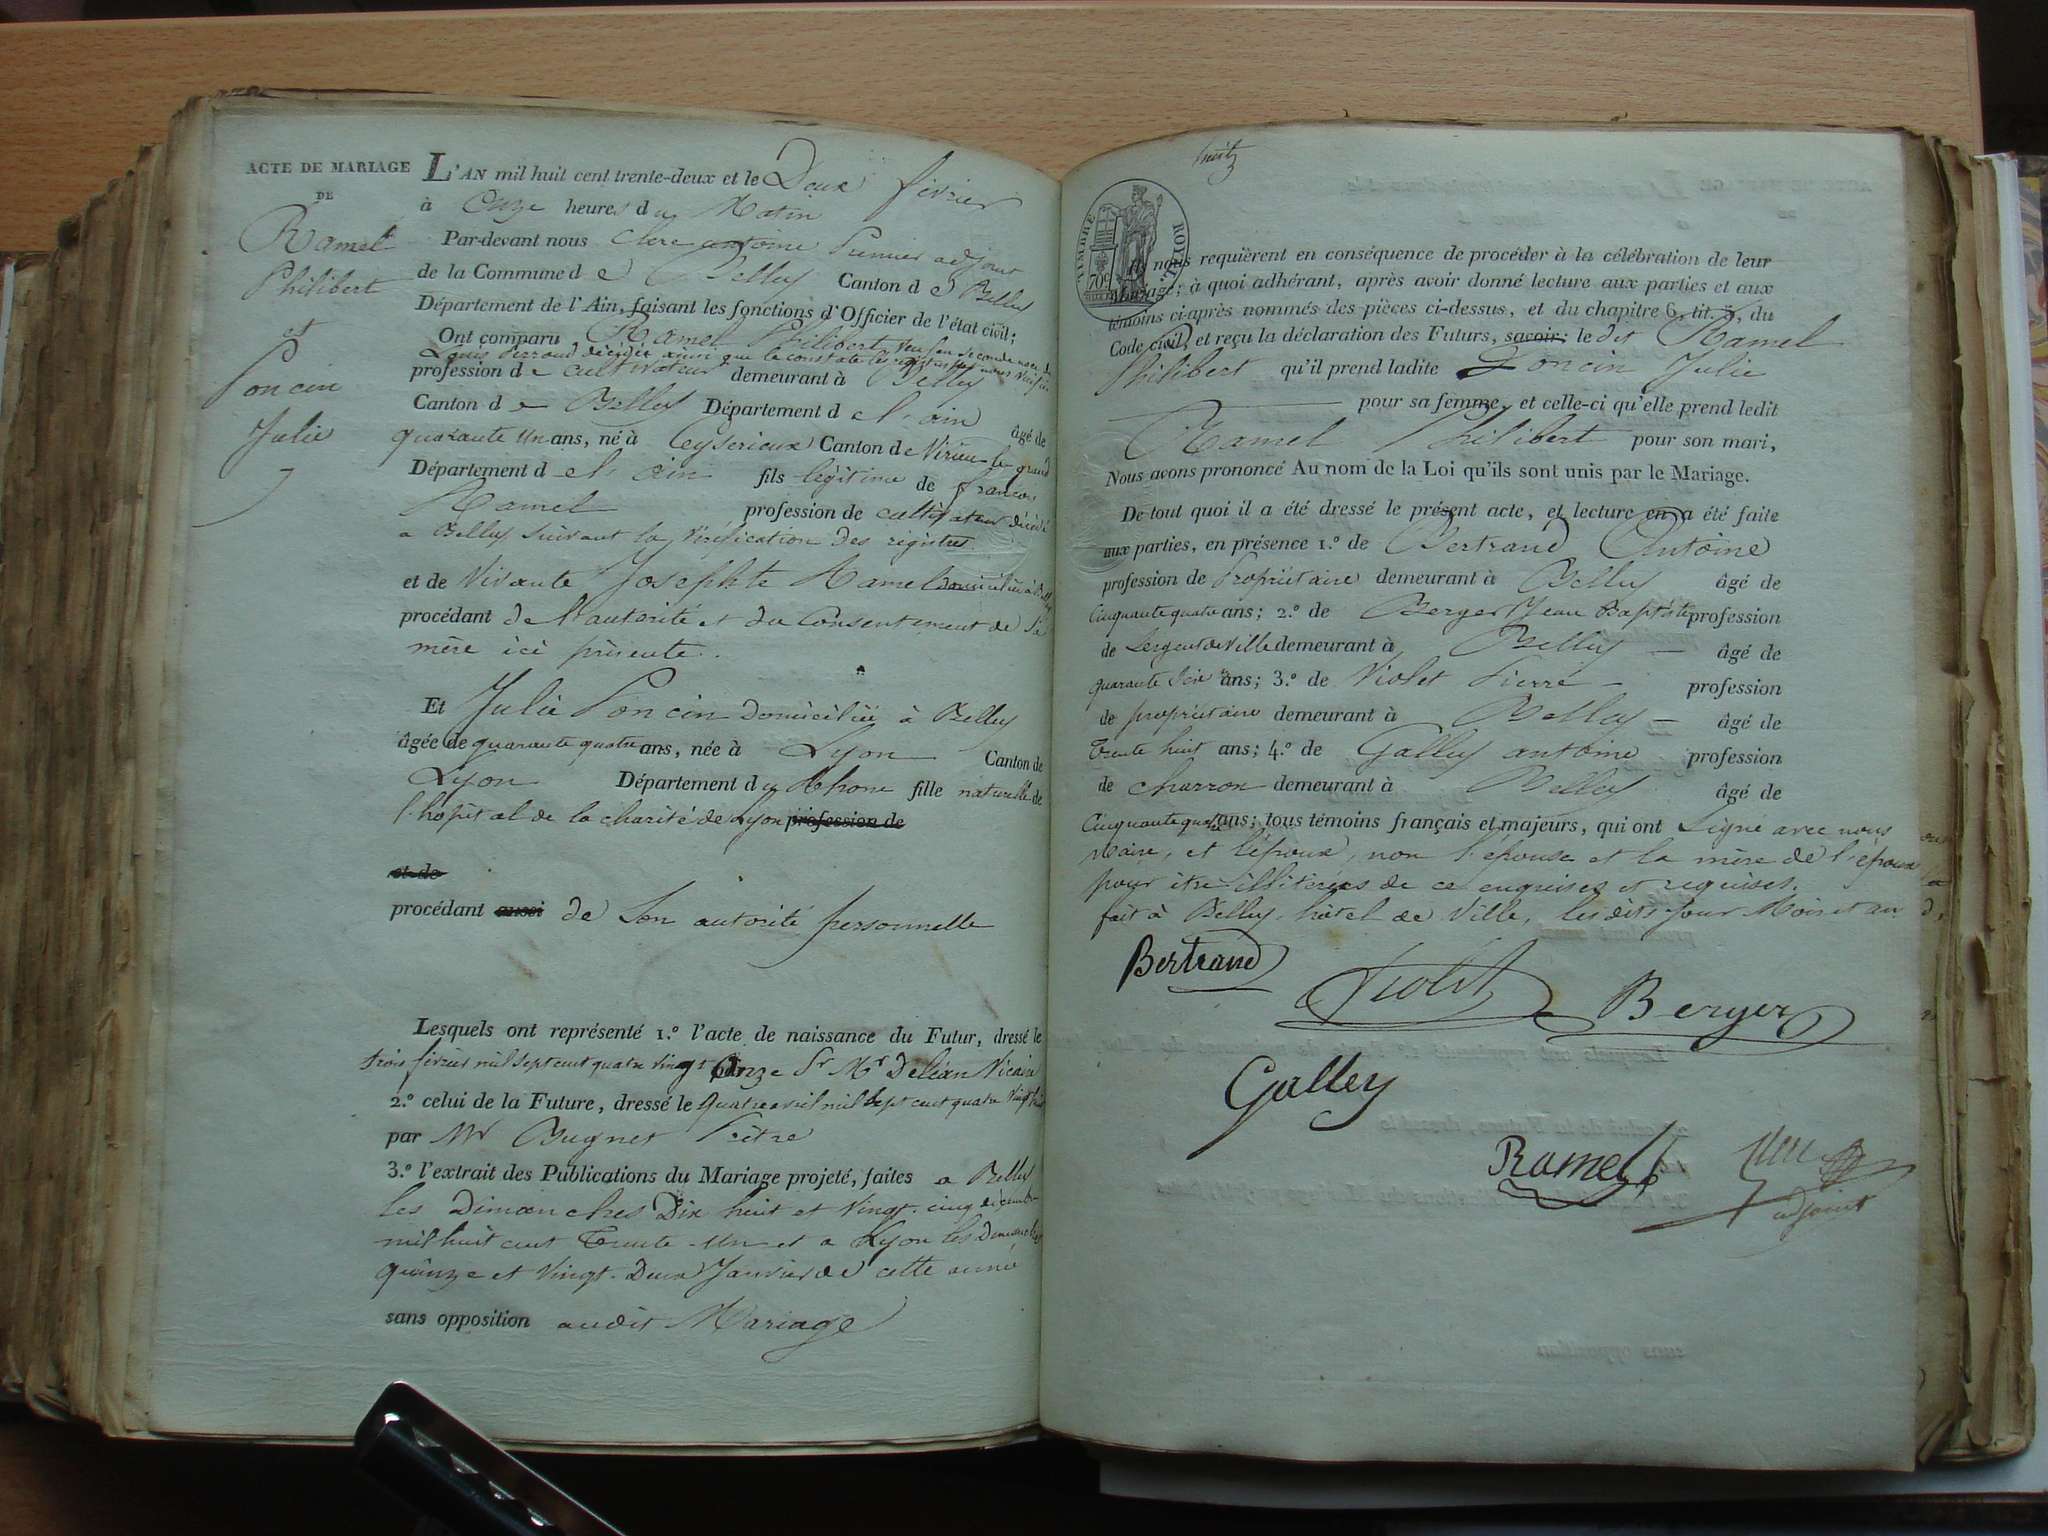 ACTE DE MARIAGE
DE
Ramel
Philibert
et
Poncin
Julie
L'AN mil huit cent trente-deux et le Deux février
à Onze heures du Matin
Par-devant nous Clerc antoine Premier adjoint
de la Commune de Belley Canton de Belley
Département de l'Ain, faisant les fonctions d'Officier de l'état civil;
Ont comparu Ramel Philibert, Veuf en Seconde noces de
Louis Perroud décédée ainsi que le constate les registres
profession de cultivateur demeurant à Belley
Canton de Belley Département de l'ain âgé de
quarante un ans, né à Ceyserieux Canton de Virieu le grand
Département de l'ain fils légitime de françois
Ramel profession de cultivateur décédé
a Belley suivant la Vérification des registres.
et de Vivante Josephte Ramel domiciliée à Belley
procédant de l'autorité et du Consentement de Sa
mère ici présente.
Et Julie Poncin domiciliée à Belley
âgée de quarante quatre ans, née à Lyon Canton de
Lyon Département du Rhone fille naturelle de
l'hopital de la charité de Lyon profession de
et de
procédant aussi de Son autorité personnelle
Lesquels ont représenté 1.º l'acte de naissance du Futur, dressé le
trois février mil sept cent quatre vingt Onze Pr Mr Deléan Vicaire
2.º celui de la Future, dressé le quatre avril mil sept cent quatre Vingt
par Mr Bugnet Prêtre
3.º l'extrait des Publications du Mariage projeté, faites a Belley
les Dimanches Dix huit et Vingt-cinq décembre
mil huit cent Trente-Un et a Lyon les Dimanches
quinze et Vingt-Deux Janvier de cette année
sans opposition audit Mariage
huit
TIMBRE ROYAL
70c
nous requièrent en conséquence de procéder à la célébration de leur
mariage; à quoi adhérant, après avoir donné lecture aux parties et aux
témoins ci-après nommés des pièces ci-dessus, et du chapitre 6, tit. 5, du
Code civil, et reçu la déclaration des Futurs, savoir: le dit Ramel
Philibert qu'il prend ladite Poncin Julie
pour sa femme, et celle-ci qu'elle prend ledit
Ramel Philibert pour son mari,
Nous avons prononcé Au nom de la Loi qu'ils sont unis par le Mariage.
De tout quoi il a été dressé le présent acte, et lecture en a été faite
aux parties, en présence 1.º de Bertrand Antoine
profession de Propriétaire demeurant à Belley âgé de
Cinquante quatre ans; 2.º de Berger Jean Baptiste profession
de Sergent de Ville demeurant à Belley âgé de
quarante Six ans; 3.º de Violet Pierre profession
de propriétaire demeurant à Belley âgé de
Trente huit ans; 4.º de Galley antoine profession
de charron demeurant à Belley âgé de
Cinquante quatre ans; tous témoins français et majeurs, qui ont Signé avec nous
Maire, et l'époux, non l'épouse et la mère de l'époux
pour être illitérées de ce enquises et requises.
fait à Belley, hôtel de Ville, les dits Jour Mois et an
Bertrand
Violet
Berger
Galley
Ramel
Clerc
adjoint